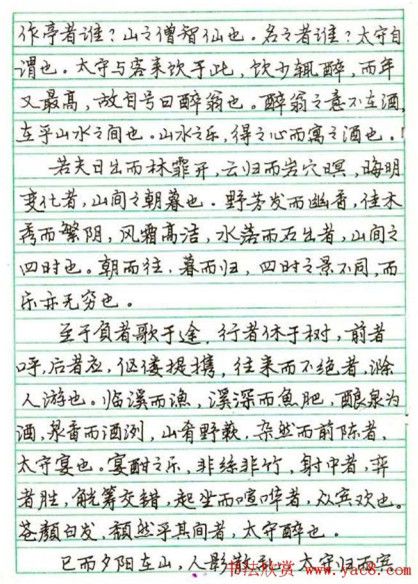 作亭者谁？山之僧智仙也。名之者谁？太守自
谓也。太守与客来饮于此，饮少辄醉，而年
又最高，故自号曰醉翁也。醉翁之意不在酒，
在乎山水之间也。山水之乐，得之心而寓之酒也。
若夫日出而林霏开，云归而岩穴暝，晦明
变化者，山间之朝暮也。野芳发而幽香，佳木
秀而繁阴，风霜高洁，水落而石出者，山间之
四时也。朝而往，暮而归，四时之景不同，而
乐亦无穷也。
至于负者歌于途，行者休于树，前者
呼，后者应，伛偻提携，往来而不绝者，滁
人游也。临溪而渔，溪深而鱼肥，酿泉为
酒，泉香而酒洌，山肴野蔌，杂然而前陈者，
太守宴也。宴酣之乐，非丝非竹，射中者，弈
者胜，觥筹交错，起坐而喧哗者，众宾欢也。
苍颜白发，颓然乎其间者，太守醉也。
已而夕阳在山，人影散乱，太守归而宾
书法欣赏 www.yac8.com